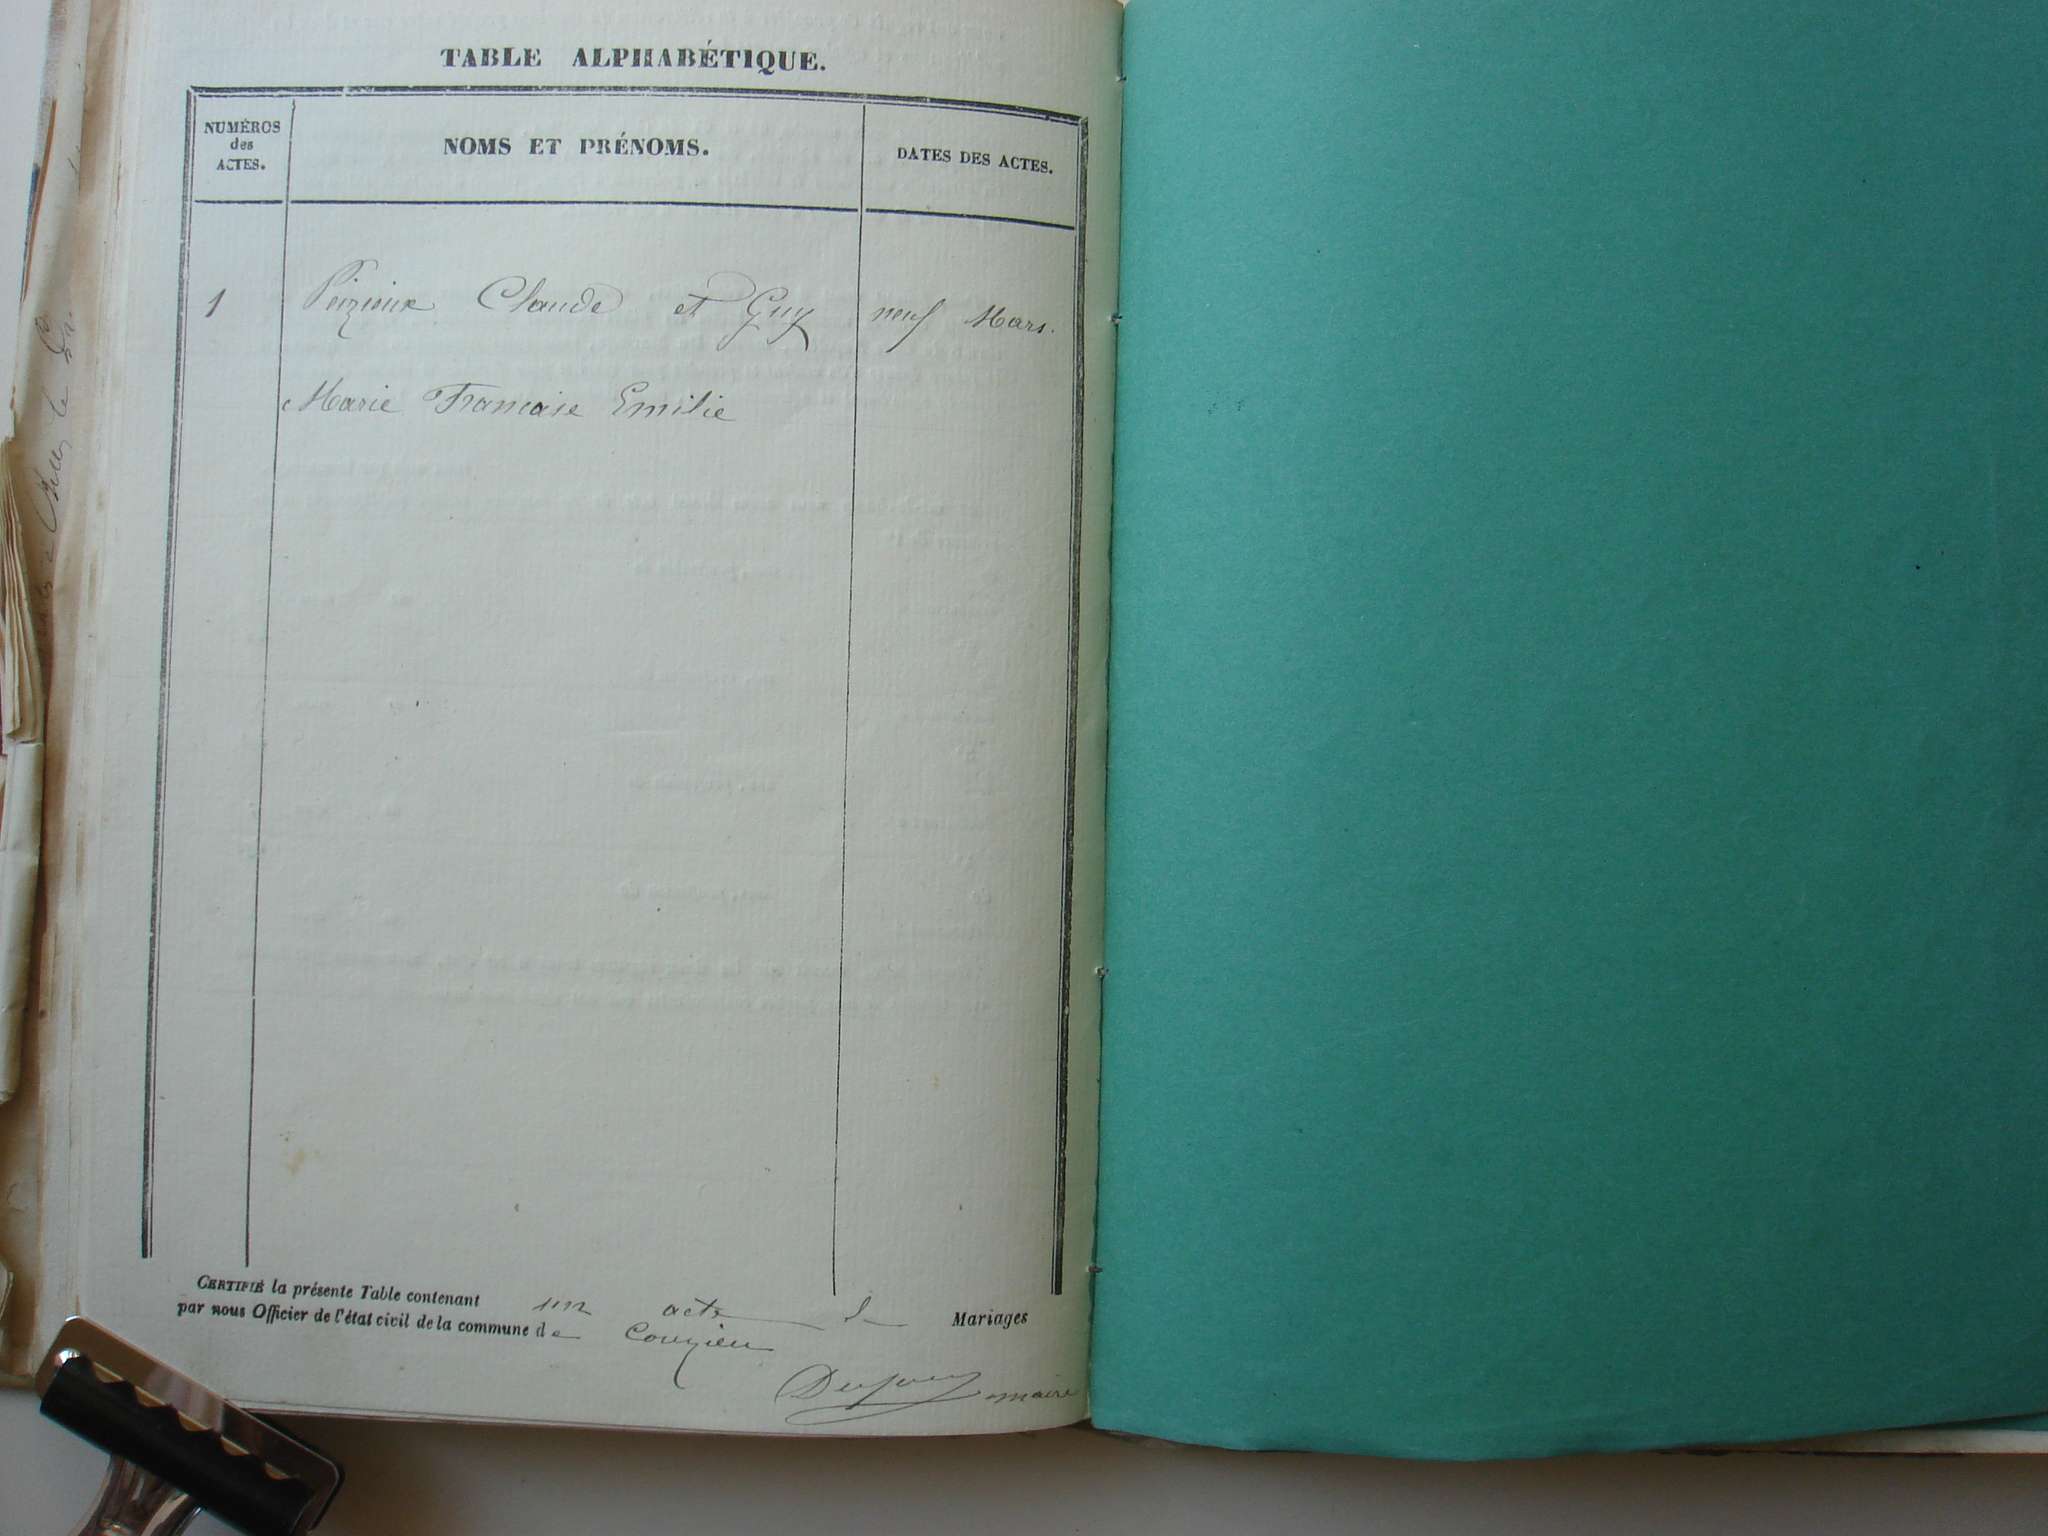 TABLE ALPHABÉTIQUE.
NUMÉROS
des
ACTES.
NOMS ET PRÉNOMS.
DATES DES ACTES.
1 Peizieux Claude et Guy neuf Mars.
Marie Francaise Emilie
CERTIFIÉ la présente Table contenant un acte de Mariages
par nous Officier de l'état civil de la commune de Couzieu
maire